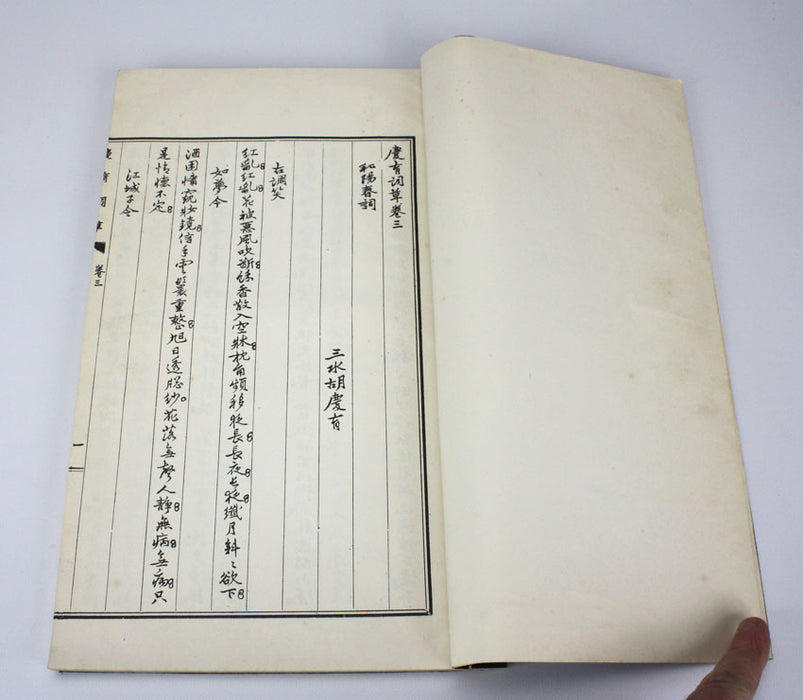 慶有詞草卷三
和陽春詞
三水胡慶有
古調笑
紅亂紅亂花被惡風吹斷餘香散入空牀枕角頻移夜長長夜长夜纖月斜〻欲下
如夢令
酒困慵窺妝鏡信手雲鬟重整旭日透牕紗花落無聲人靜無病無病只
是情懷不定
江城子令
慶有詞草 卷三 一